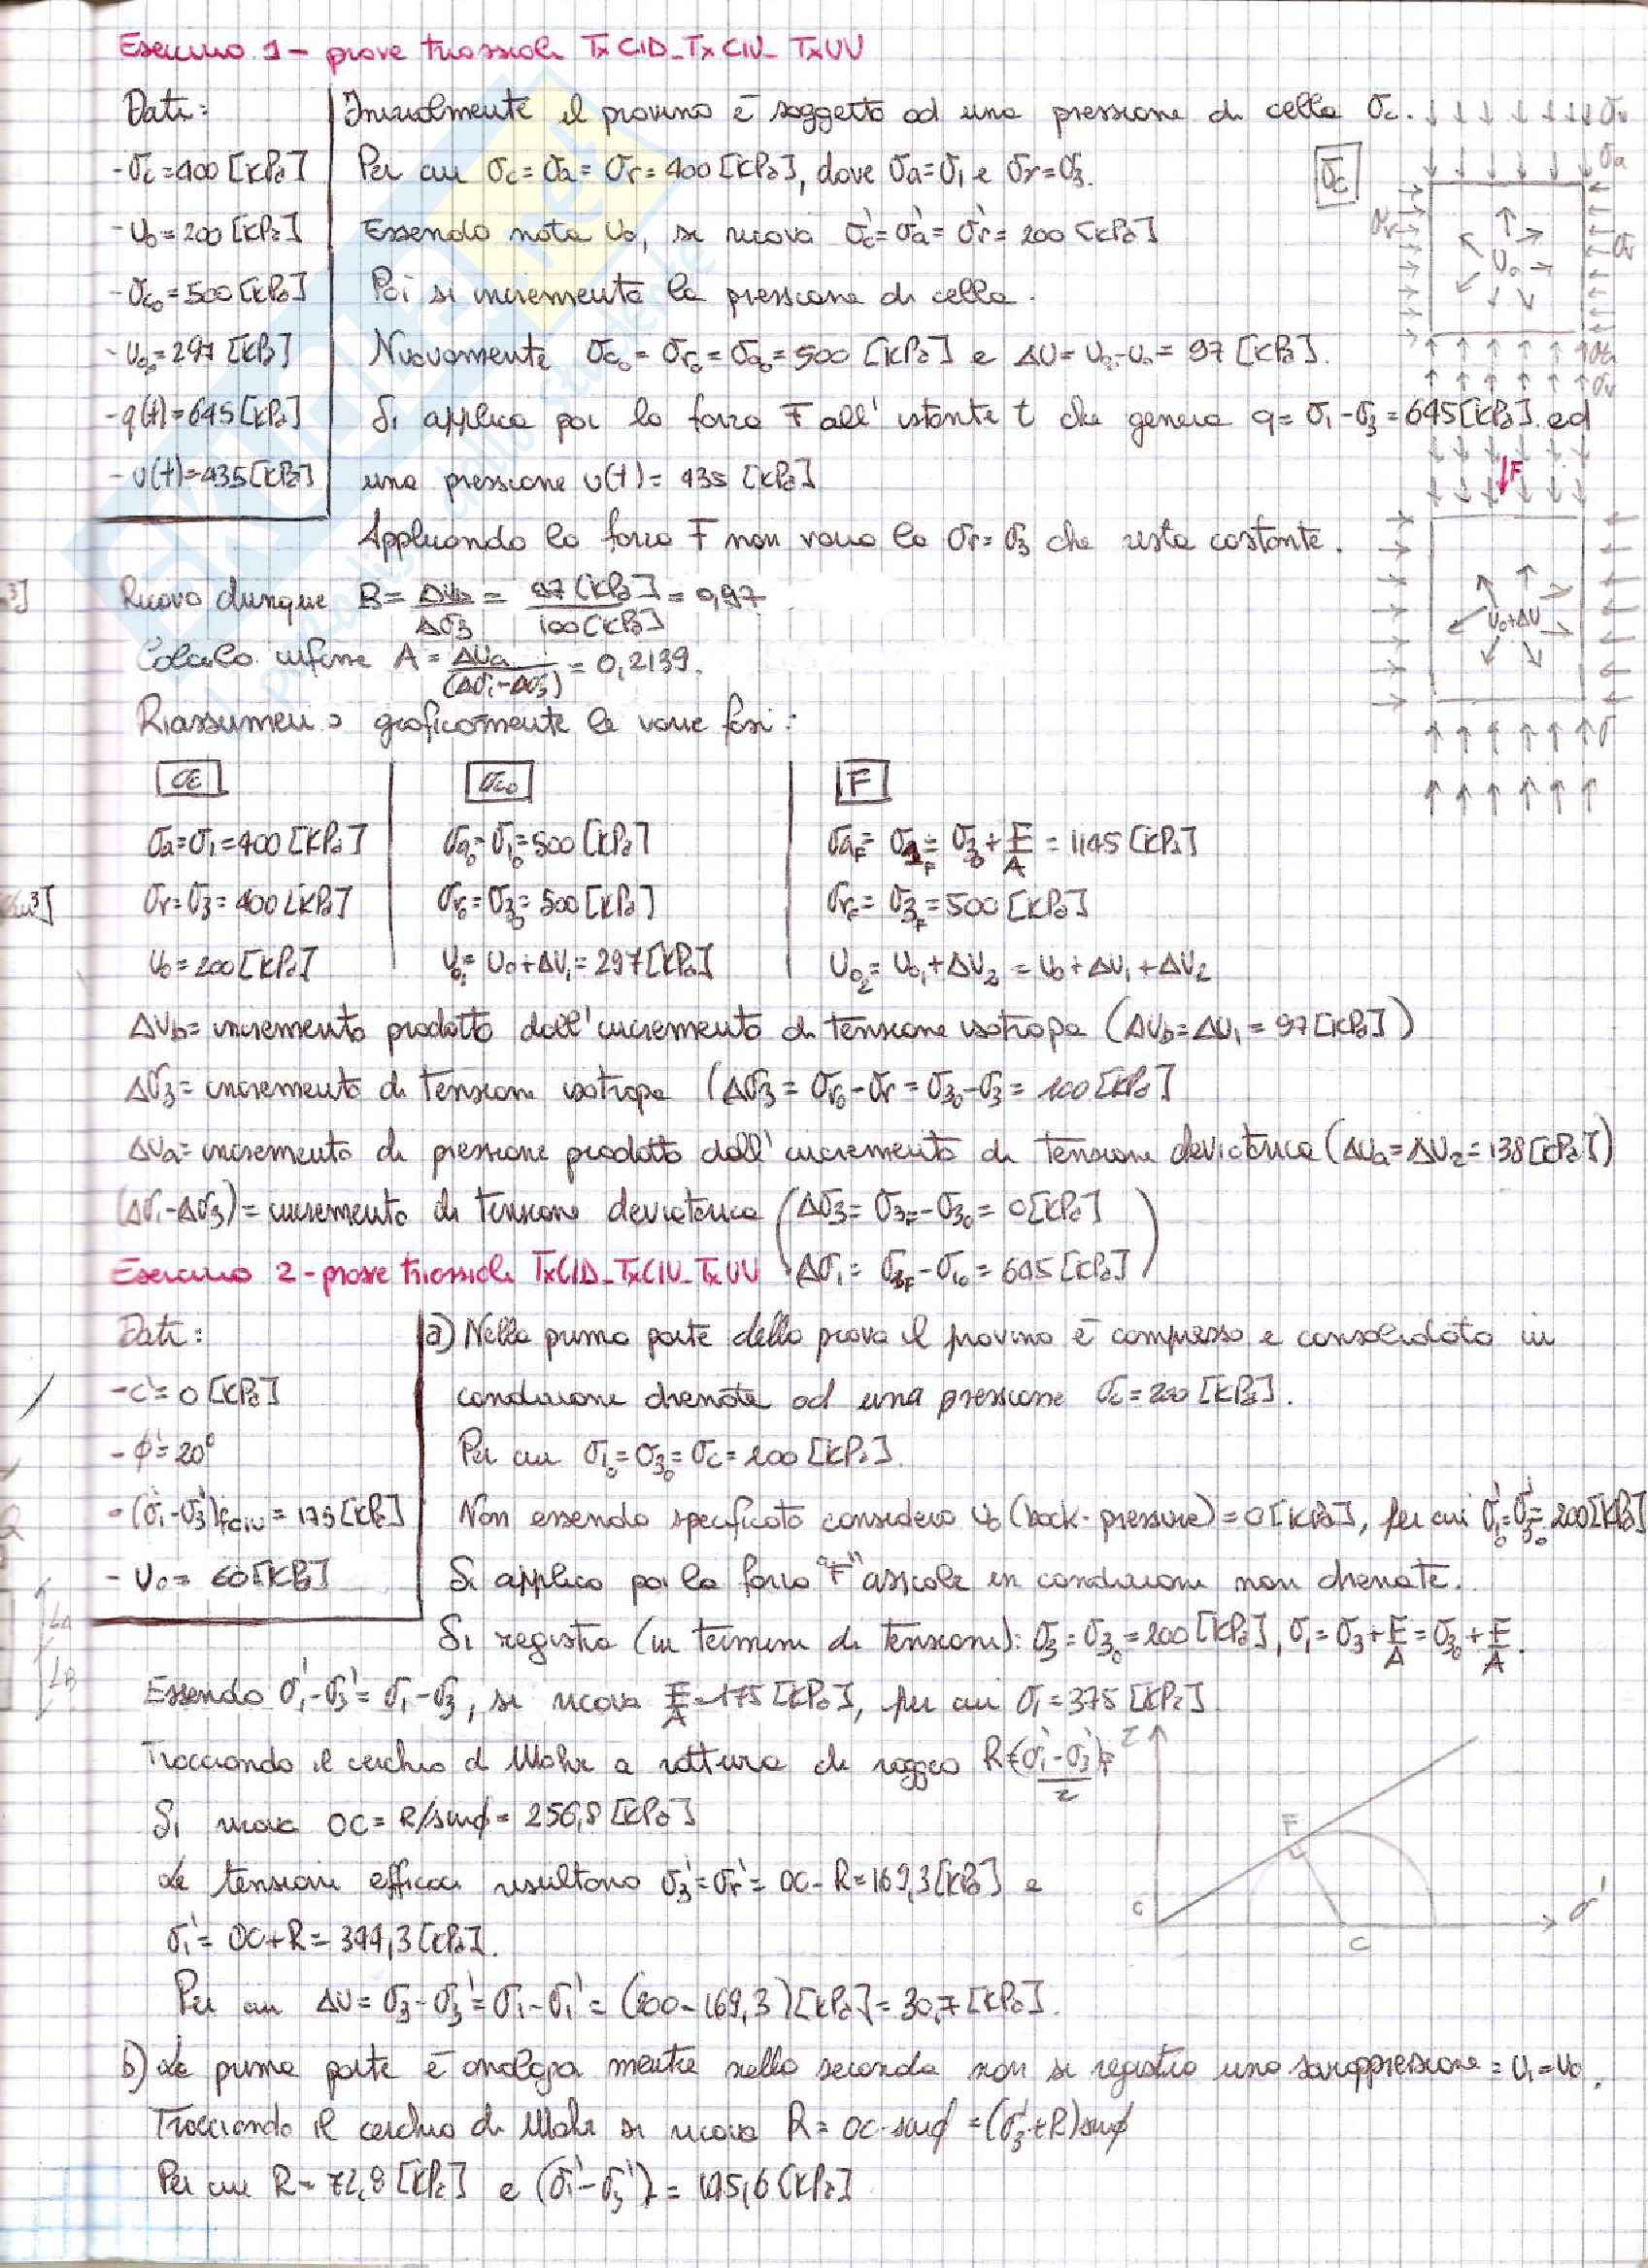 Esercizio 1 - prove triassiali TxCID_TxCIU_TxUU
Dati:
- σc = 400 [kPa]
- U0 = 200 [kPa]
- σc0 = 500 [kPa]
- U01 = 297 [kPa]
- q(t) = 645 [kPa]
- U(t) = 435 [kPa]
Inizialmente il provino è soggetto ad una pressione di cella σc.
Per cui σc = σa = σr = 400 [kPa], dove σa = σ1 e σr = σ3.
Essendo nota U0, si ricava σc' = σa' = σr' = 200 [kPa]
Poi si incrementa la pressione di cella.
Nuovamente σc0 = σr0 = σa0 = 500 [kPa] e ΔU = U01 - U0 = 97 [kPa].
Si applica poi la forza F all'istante t che genera q = σ1 - σ3 = 645 [kPa] ed
una pressione U(t) = 435 [kPa]
Applicando la forza F non varia la σr = σ3 che resta costante.
Ricavo dunque B = ΔUb/Δσ3 = 97 [kPa]/100 [kPa] = 0,97
Calcolo infine A = ΔUa/(Δσ1 - Δσ3) = 0,2139.
Riassumendo graficamente le varie fasi:
σc
σa = σ1 = 400 [kPa]
σr = σ3 = 400 [kPa]
U0 = 200 [kPa]
σc0
σa0 = σ10 = 500 [kPa]
σr0 = σ30 = 500 [kPa]
U01 = U0 + ΔU1 = 297 [kPa]
F
σaF = σ1F = σ30 + F/A = 1145 [kPa]
σrF = σ3F = 500 [kPa]
U02 = U01 + ΔU2 = U0 + ΔU1 + ΔU2
ΔUb = incremento prodotto dall'incremento di tensione isotropa (ΔUb = ΔU1 = 97 [kPa])
Δσ3 = incremento di tensione isotropa (Δσ3 = σr0 - σr = σ30 - σ3 = 100 [kPa]
ΔUa = incremento di pressione prodotto dall'incremento di tensione deviatorica (ΔUa = ΔU2 = 138 [kPa])
(Δσ1 - Δσ3) = incremento di tensione deviatorica (Δσ3 = σ3F - σ30 = 0 [kPa]
Δσ1 = σ1F - σ10 = 645 [kPa])
Esercizio 2 - prove triassiali TxCID_TxCIU_TxUU
Dati:
- c' = 0 [kPa]
- ϕ' = 20°
- (σ1' - σ3')fCIU = 175 [kPa]
- U0 = 60 [kPa]
a) Nella prima parte della prova il provino è compresso e consolidato in
condizione drenata ad una pressione σc = 200 [kPa].
Per cui σ10 = σ30 = σc = 200 [kPa].
Non essendo specificato considero U0 (back-pressure) = 0 [kPa], per cui σ10' = σ30' = 200 [kPa]
Si applica poi la forza "F" assiale in condizioni non drenate.
Si registra (in termini di tensioni): σ3 = σ30 = 200 [kPa], σ1 = σ3 + F/A = σ30 + F/A.
Essendo σ1' - σ3' = σ1 - σ3, si ricava F/A = 175 [kPa], per cui σ1 = 375 [kPa]
Tracciando il cerchio di Mohr a rottura di raggio R = (σ1' - σ3')F/2
Si ricava OC = R/sinϕ = 256,8 [kPa]
Le tensioni efficaci risultano σ3' = σr' = OC - R = 169,3 [kPa] e
σ1' = OC + R = 344,3 [kPa].
Per cui ΔU = σ3 - σ3' = σ1 - σ1' = (200 - 169,3) [kPa] = 30,7 [kPa].
b) La prima parte è analoga mentre nella seconda non si registra una sovrappressione = U1 = U0.
Tracciando il cerchio di Mohr si ricava R = OC·sinϕ = (σ3' + R) sinϕ
Per cui R = 72,8 [kPa] e (σ1' - σ3')f = 145,6 [kPa]